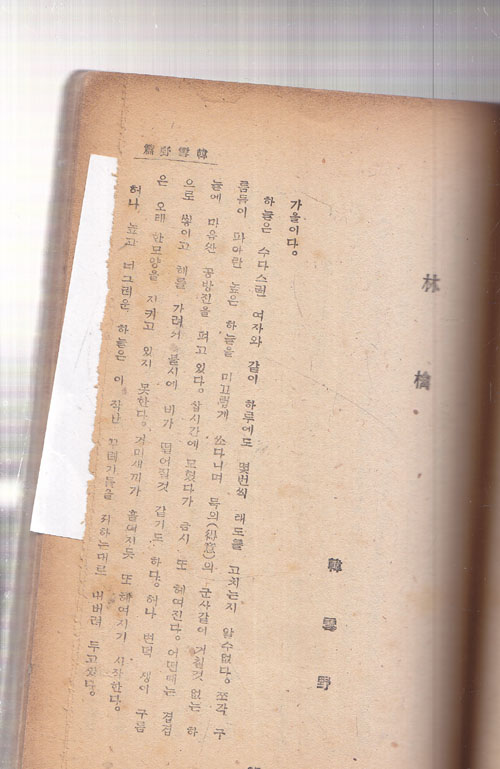 林檎
韓雪野
가을이다。
하늘은 수다스런 여자와 같이 하루에도 몇번씩 태도를 고치는지 알수없다。쪼각 구
름들이 파아란 높은 하늘을 미끄럽게 쏘다니며 득의(得意)의 군사같이 거칠것 없는 하
늘에 마음한 공방진을 펴고 있다。삽시간에 모혔다가 금시 또 헤여진다。어떤때는 겹겹
으로 쌓이고 해를 가려거 불시에 비가 떨어질것 같기도 하다。허나 변덕 쟁이 구름
은 오래 한모양을 지키고 있지 못한다。거미새끼가 흩어지듯 또 헤여지기 시작한다。
허나 높고 너그러운 하늘은 이 작난 꾸러기들을 저하는대로 내버려 두고있다。
韓雪野篇